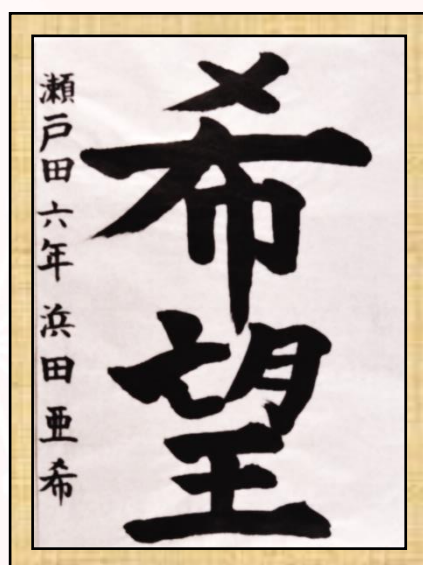 希望
瀬戸田六年 浜田亜希